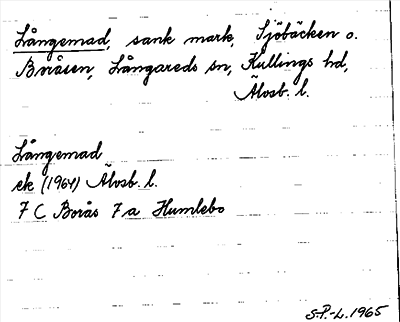 Långemad, sank mark, Sjöbäcken o.
Buråsen, Långareds sn, Kullings hd,
Älvsb. l.
Långemad
ek (1964) Älvsb. l.
7 C Borås 7 a Humlebo
S.P.-L. 1965